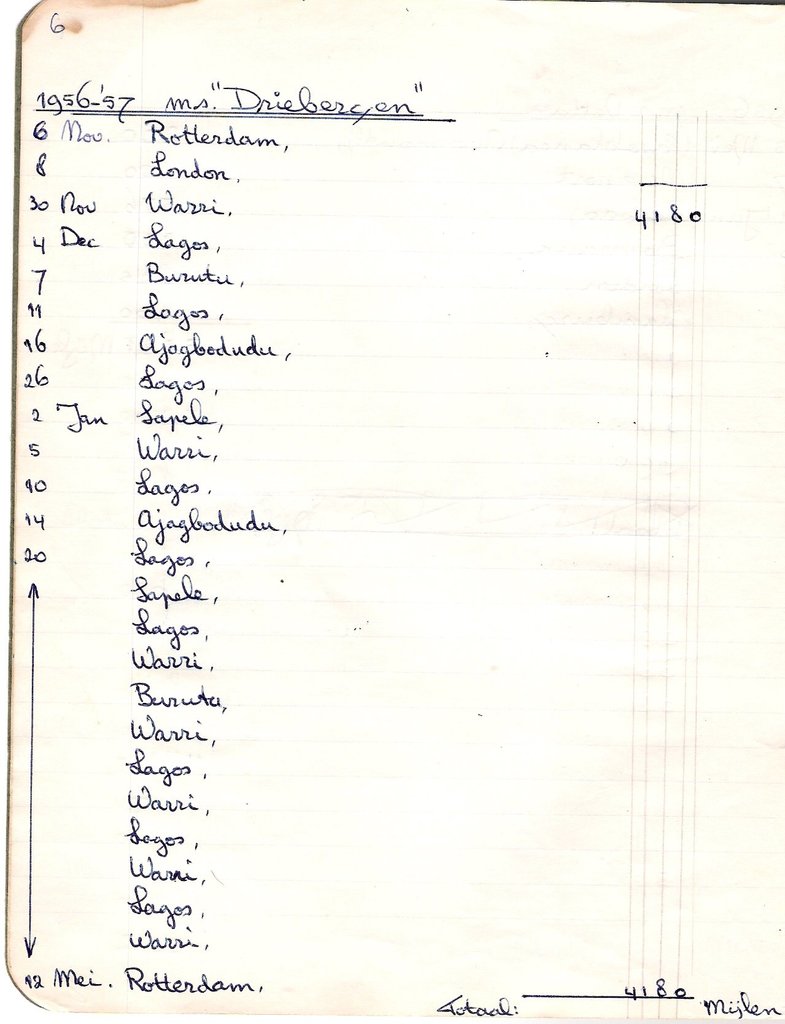 6
1956-'57 ms. "Driebergen"
6 Nov. Rotterdam,
8 London,
30 Nov Warri, 4180
4 Dec Lagos,
7 Burutu,
11 Lagos,
16 Ajagbodudu,
26 Lagos,
2 Jan Sapele,
5 Warri,
10 Lagos.
14 Ajagbodudu,
20 Lagos,
Sapele,
Lagos,
Warri,
Burutu,
Warri,
Lagos,
Warri,
Lagos,
Warri,
Lagos,
Warri,
12 Mei. Rotterdam.
Totaal: 4180 Mijlen